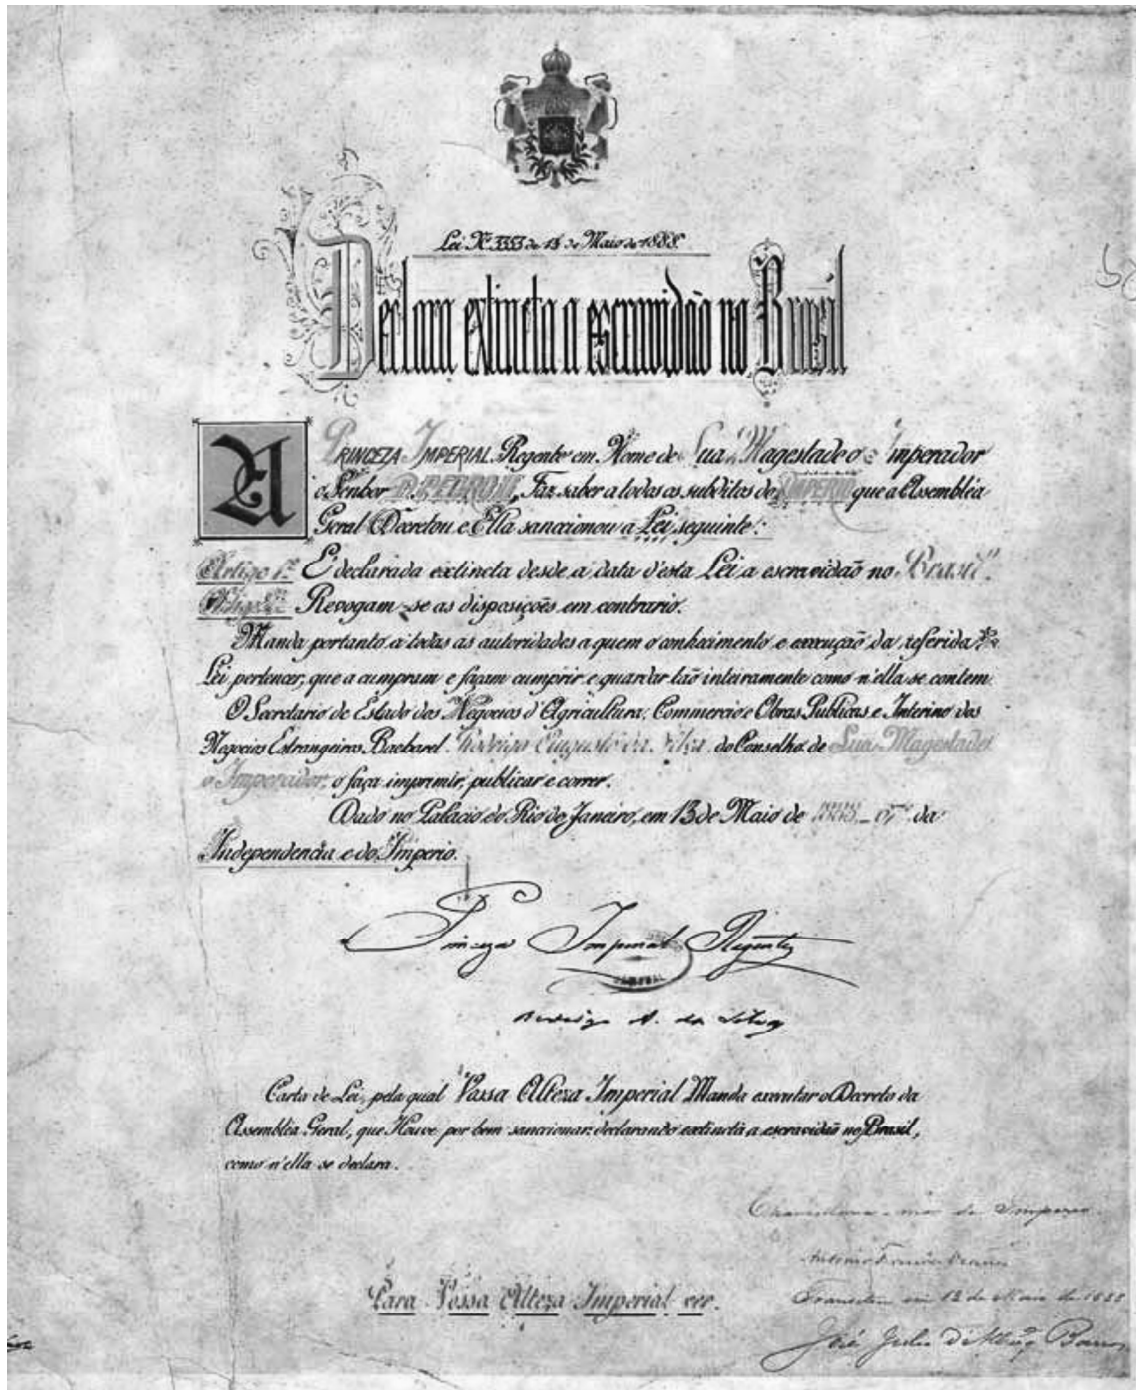 Lei Nº 3353 de 13 de Maio de 1888.
Declara extincta a escravidão no Brasil
A PRINCEZA IMPERIAL Regente em Nome de Sua Magestade o Imperador
o Senhor D. PEDRO II, Faz saber a todos os subditos do IMPERIO que a Assembléa
Geral Decretou e Ella sanccionou a Lei seguinte:
Artigo 1º É declarada extincta desde a data d'esta Lei a escravidão no Brasil.
Artigo 2º Revogam-se as disposições em contrario.
Manda portanto a todas as autoridades a quem o conhecimento e execução da referida
Lei pertencer, que a cumpram e façam cumprir e guardar tão inteiramente como n'ella se contem.
O Secretario de Estado dos Negocios d'Agricultura, Commercio e Obras Publicas e Interino dos
Negocios Estrangeiros Bacharel Rodrigo Augusto da Silva do Conselho de Sua Magestade
o Imperador, o faça imprimir, publicar e correr.
Dado no Palacio do Rio de Janeiro, em 13 de Maio de 1888 - 67º da
Independencia e do Imperio.
Princeza Imperial Regente
Rodrigo A. da Silva
Carta de Lei, pela qual Vossa Alteza Imperial Manda executar o Decreto da
Assembléa Geral, que Houve por bem sanccionar declarando extincta a escravidão no Brasil,
como n'ella se declara.
Para Vossa Alteza Imperial ver.
Chancellaria-mór do Imperio.
Antonio Ferreira Vianna
Transitou em 13 de Maio de 1888
José Julio d'Albuqº Barros